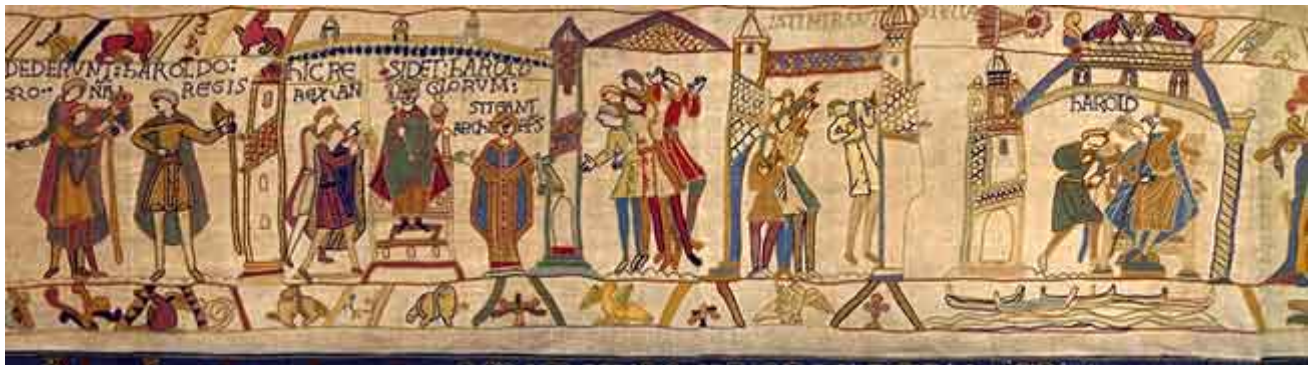 DEDERVNT: hAROLDO:
RO NA REGIS
hIC RE SIDET: hAROLD
REX AN GLORVM:
STIGANT
ARChI EPS
ISTI MIRANT STELLA
hAROLD